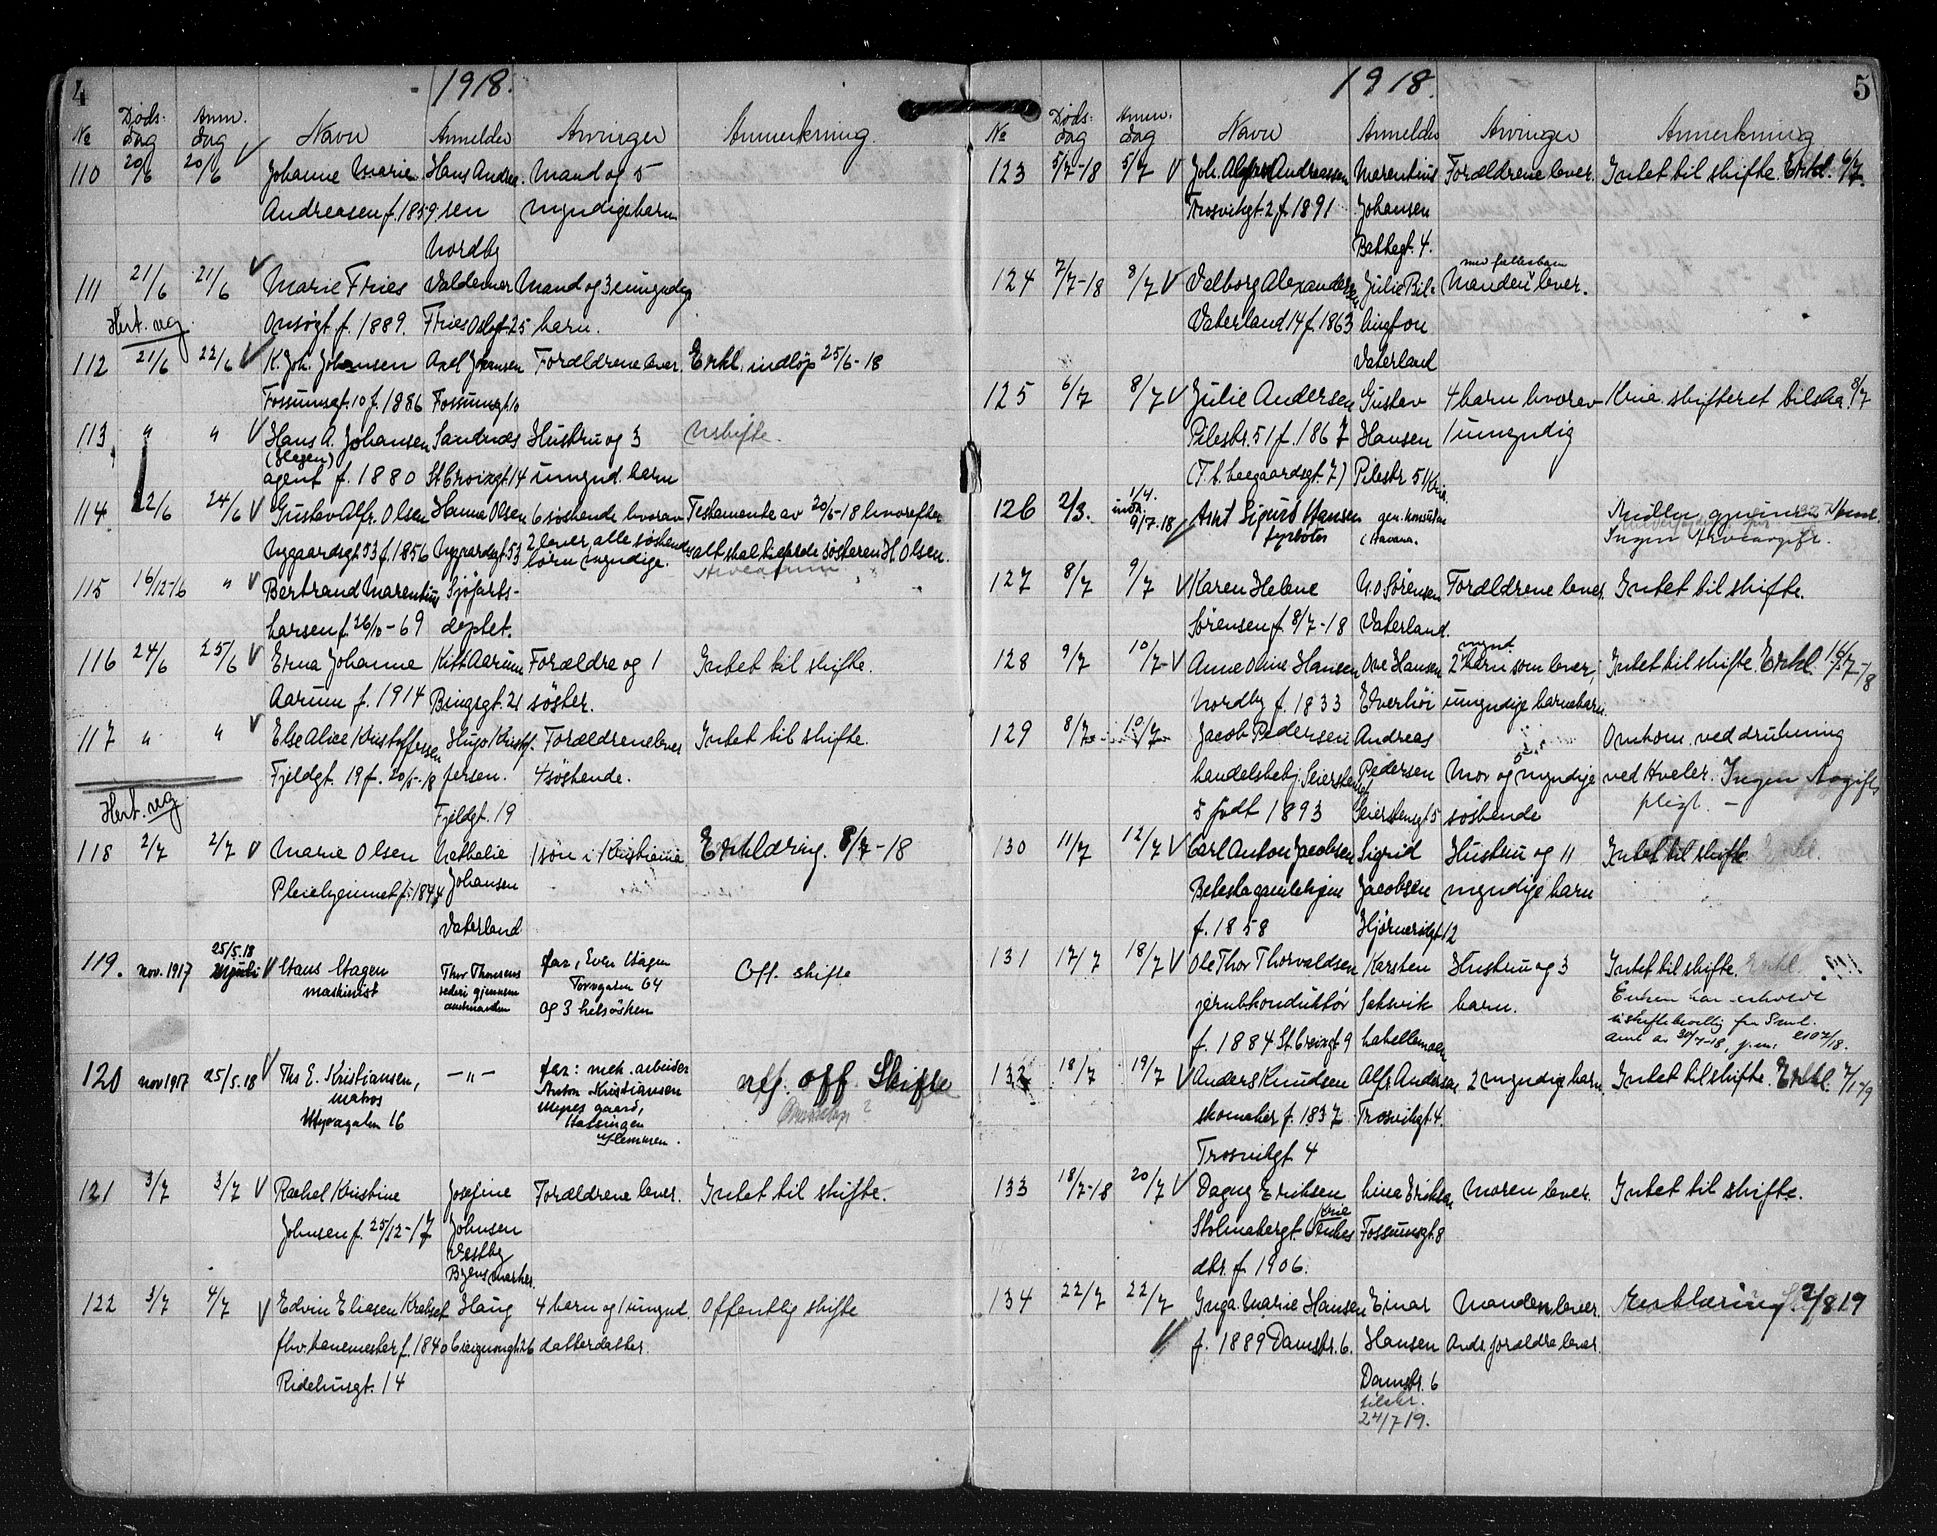 4
1918.
№ Døds-dag Anm. dag Navn Anmelder Arvinger Anmerkning.
110 20/6 20/6 V Johanne Marie Hans Andrea- Mand og 5
Andreasen f. 1859. sen myndige barn
Nordby
111 21/6 21/6 V Marie Fries Valdemar Mand og 3 umyndige
Hert. ug. Onsøgt. f. 1889. Fries 25 barn.
112 21/6 22/6 V K. Joh. Johansen Axel Johansen Forældrene lever. Erkl. indløp 25/6-18
Fossumsgt. 10 f. 1886 Fossumgt. 10
113 " " V Hans A. Johansen Sandnes Hustru og 3 Uskifte.
(Hegen)
agent f. 1880 St. Croixgt. 14 umynd. barn
114 22/6 24/6 V Gustav Alfr. Olsen Hanna Olsen 6 søskende hvorav Testamente av 20/6-18 hvorefter
Nygaardsgt. 53 f. 1856 Nygaardsgt. 53 2 lever, alle søskende- alt skal tilfalde søsteren H. Olsen.
børn myndige.
115 16/12-16 " V Bertrand Marentius Sjøfarts-
Larsen f. 26/10-69 deptet.
116 24/6 25/6 V Erna Johanne Kitt Aarum Forældre og 1 Intet til skifte.
Aarum f. 1914 Bingsgt. 21 søster.
117 " " V Else Alice Kristoffersen Hugo Kristof- Forældrene lever Intet til skifte.
Fjeldgt. 19 f. 20/5-18 fersen. 4 søskende.
Hert. ug Fjeldgt. 19
118 2/7 2/7 V Marie Olsen Nathalie 1 søn i Kristiania Erklæring. 8/7-18
Pleiehjemmet f. 1844 Johansen
Vaterland
25/5.18
119. nov. 1917 V Hans Hagen Thor Thoresens far, Even Hagen Off. skifte
maskinist rederi gjennem Torvgaten 64
og 3 helsøsken
120 nov 1917 25/5.18 V Ths E. Kristiansen, —"— far: mek. arbeider off. Skifte
matros Anton Kristiansen
Myragaten 16 gaard,
Glemmen.
121 3/7 3/7 V Rachel Kristine Josefine Forældrene lever. Intet til skifte.
Johnsen f. 25/12-17 Johnsen
Vestby
Byens marker.
122 3/7 4/7 V Edvin Eliasen Krabset Haug 4 barn og 1 umynd. Offentlig skifte
fhv. havnemester f. 1840 datterdatter.
Ridehusgt. 14
5
1918.
№ Døds-dag Anm. dag Navn Anmelder Arvinger Anmerkning
123 5/7-18 5/7 V Joh. Alfred Andreassen Marentius Forældrene lever. Intet til skifte. Erkl. 6/7.
Trosvikgt. 2 f. 1891 Johansen
Bakkegt. 4.
med fællesbarn
124 7/7-18 8/7 V Valborg Alexandersen Julie Bil- Manden lever.
Vaterland 14 f. 1863 lington
Vaterland
125 6/7 8/7 V Julie Andersen Gustav 4 barn hvorav Kria. skifteret tilskr. 8/7
Pilestr. 51 f. 1867 Hansen 1 umyndig
(T. t. Leegaardsgt. 7) Pilestr 51 Kria.
126 2/3. 1/4. 9/7.18 Asnt Sigurd Hansen gen. konsulen
fyrbøter i Havana. Ingen Arveavgift.
127 8/7 9/7 V Karen Helene N. O. Sørensen Forældrene lever. Intet til skifte.
Sørensen f. 8/7-18 Vaterland.
mynd
128 9/7 10/7 V Anne Oline Hansen Ove Hansen 2 barn som lever, Intet til skifte. Erkl. 16/7-18
Nordby f. 1833 Elverhöi umyndige barnebarn.
129 8/7 10/7 Jacob Pedersen Andreas Omkom. ved drukning
handelsbetj. Seierstensgt. Pedersen Mor og myndige ved Hvaler. Ingen Avgifts
5 født 1893 Seierstensgt 5 søskende pligt. —
130 11/7 12/7 V Carl Anton Jacobsen Sigrid Hustru og 11 Intet til skifte. Erkl.
Betesta gamlehjem Jacobsen myndige barn
f. 1858 Hjørnerisgt. 12
131 17/7 18/7 V Ole Thor Thorvaldsen Karsten Hustru og 3 Intet til skifte. Erkl.
jernbkonduktör Saksvik barn. Enken har erholdt
f. 1884 St. Croixgt. 9 Labellemoen uskiftebevillig fra Sml.
amt av 30/7-18
132 18/7 19/7 V Anders Knudsen Alfr. Andersen 2 myndige barn. Intet til skifte. Erkl. 7/1-19
skomaker f. 1837 Trosvikgt. 4.
Trosvikgt. 4
133 18/7-18 20/7 V Dagny Eriksen Lina Eriksen Moren lever. Intet til skifte.
Holmebergt. 6 Fossumsgt. 8
dtr. f. 1906.
134 22/7 22/7 V Inga Marie Hansen Einar Manden lever. Erklæring 2/8 19
f. 1889 Damstr. 6. Hansen Avds. forældre lever.
Damstr. 6
tilskr.
24/7 19.